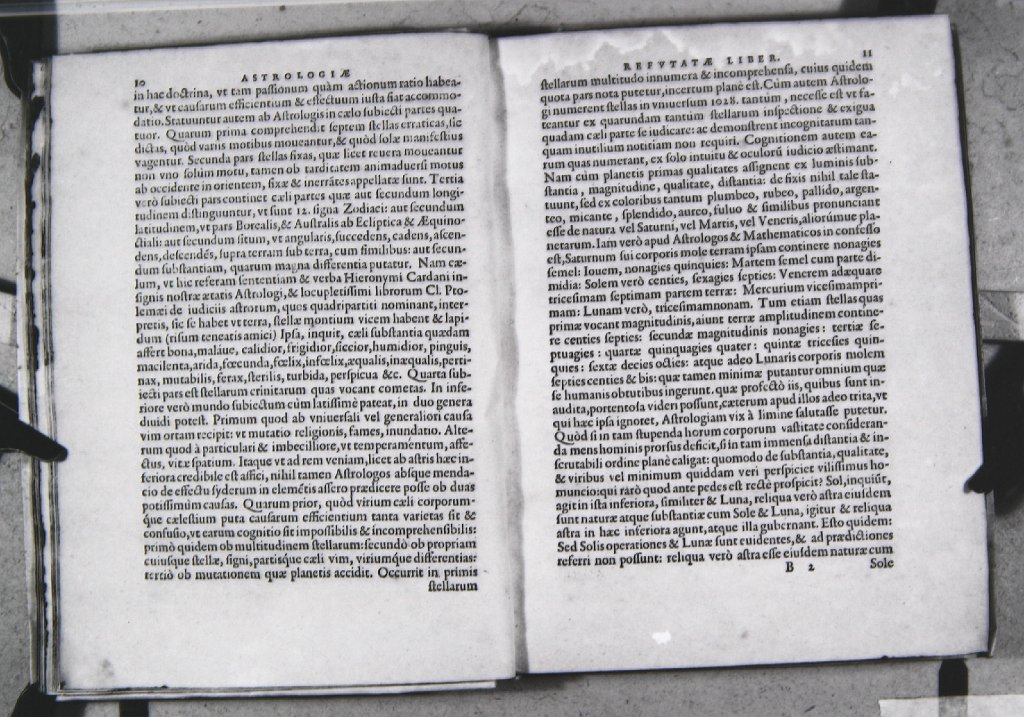 10
ASTROLOGIÆ
in hac doctrina, vt tam passionum quàm actionum ratio habea-
tur, & vt causarum efficientium & effectuum iusta fiat accommo-
datio. Statuuntur autem ab Astrologis in cælo subiecti partes qua-
tuor. Quarum prima comprehendit septem stellas erraticas, sic
dictas, quòd variis motibus moueantur, & quòd solæ manifestius
vagentur. Secunda pars stellas fixas, quæ licet reuera moueantur
non vno solùm motu, tamen ob tarditatem animaduersi motus
ab occidente in orientem, fixæ & inerrātes appellatæ sunt. Tertia
verò subiecti pars continet cæli partes quæ aut secundum longi-
tudinem distinguuntur, vt sunt 12. signa Zodiaci: aut secundum
latitudinem, vt pars Borealis, & Australis ab Ecliptica & Æquino-
ctiali: aut secundum situm, vt angularis, succedens, cadens, ascen-
dens, descendēs, supra terram sub terra, cum similibus: aut secun-
dum substantiam, quarum magna differentia putatur. Nam cæ-
lum, vt hic referam sententiam & verba Hieronymi Cardani in-
signis nostræ ætatis Astrologi, & locupletissimi librorum Cl. Pto-
lemæi de iudiciis astrorum, quos quadripartiti nominant, inter-
pretis, sic se habet vt terra, stellæ montium vicem habent & lapi-
dum (risum teneatis amici) Ipsa, inquit, cæli substantia quædam
affert bona, maláue, calidior, frigidior, siccior, humidior, pinguis,
macilenta, arida, fœcunda, fœlix, infœlix, æqualis, inæqualis, perti-
nax, mutabilis, ferax, sterilis, turbida, perspicua &c. Quarta sub-
iecti pars est stellarum crinitarum quas vocant cometas. In infe-
riore verò mundo subiectum cùm latissimè pateat, in duo genera
diuidi potest. Primum quod ab vniuersali vel generaliori causa
vim ortam recipit: vt mutatio religionis, fames, inundatio. Alte-
rum quod à particulari & imbecilliore, vt temperamentum, affe-
ctus, vitæ spatium. Itaque vt ad rem veniam, licet ab astris hæc in-
feriora credibile est affici, nihil tamen Astrologos absque menda-
cio de effectu syderum in elemētis assero prædicere posse ob duas
potissimùm causas. Quarum prior, quòd virium cæli corporum-
que cælestium puta causarum efficientium tanta varietas sit &
confusio, vt earum cognitio sit impossibilis & incomprehensibilis:
primò quidem ob multitudinem stellarum: secundò ob propriam
cuiusque stellæ, signi, partisque cæli vim, viriumque differentias:
tertiò ob mutationem quæ planetis accidit. Occurrit in primis
stellarum
REFVTATÆ LIBER.
11
stellarum multitudo innumera & incomprehensa, cuius quidem
quota pars nota putetur, incertum planè est. Cùm autem Astrolo-
gi numerent stellas in vniuersum 1028. tantùm, necesse est vt fa-
teantur ex quarundam tantùm stellarum inspectione & exigua
quadam cæli parte se iudicare: ac demonstrent incognitarum tan-
quam inutilium notitiam non requiri. Cognitionem autem ea-
rum quas numerant, ex solo intuitu & oculorū iudicio æstimant.
Nam cùm planetis primas qualitates assignent ex luminis sub-
stantia, magnitudine, qualitate, distantia: de fixis nihil tale sta-
tuunt, sed ex coloribus tantum plumbeo, rubeo, pallido, argen-
teo, micante, splendido, aureo, fuluo & similibus pronunciant
esse de natura vel Saturni, vel Martis, vel Veneris, aliorúmue pla-
netarum. Iam verò apud Astrologos & Mathematicos in confesso
est, Saturnum sui corporis mole terram ipsam continere nonagies
semel: Iouem, nonagies quinquies: Martem semel cum parte di-
midia: Solem verò centies, sexagies septies: Venerem adæquare
tricesimam septimam partem terræ: Mercurium vicesimampri-
mam: Lunam verò, tricesimamnonam. Tum etiam stellas quas
primæ vocant magnitudinis, aiunt terræ amplitudinem contine-
re centies septies: secundæ magnitudinis nonagies: tertiæ se-
ptuagies: quartæ quinquagies quater: quintæ tricesies quin-
quies: sextæ decies octies: atque adeo Lunaris corporis molem
septies centies & bis: quæ tamen minimæ putantur omnium quæ
se humanis obtutibus ingerunt. quæ profectò iis, quibus sunt in-
audita, portentosa videri possunt, cæterum apud illos adeo trita, vt
qui hæc ipsa ignoret, Astrologiam vix à limine salutasse putetur.
Quòd si in tam stupenda horum corporum vastitate consideran-
da mens hominis prorsus deficit, si in tam immensa distantia & in-
scrutabili ordine planè caligat: quomodo de substantia, qualitate,
& viribus vel minimum quiddam veri perspiciet vilissimus ho-
muncio: qui rarò quod ante pedes est rectè prospicit? Sol, inquiūt,
agit in ista inferiora, similiter & Luna, reliqua verò astra eiusdem
sunt naturæ atque substantiæ cum Sole & Luna, igitur & reliqua
astra in hæc inferiora agunt, atque illa gubernant. Esto quidem:
Sed Solis operationes & Lunæ sunt euidentes, & ad prædictiones
referri non possunt: reliqua verò astra esse eiusdem naturæ cum
B 2
Sole